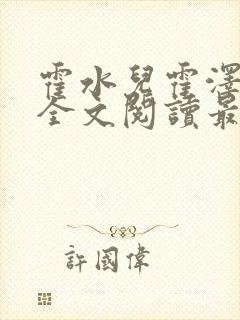 霍水兒霍澤
全文閱讀最
許國偉